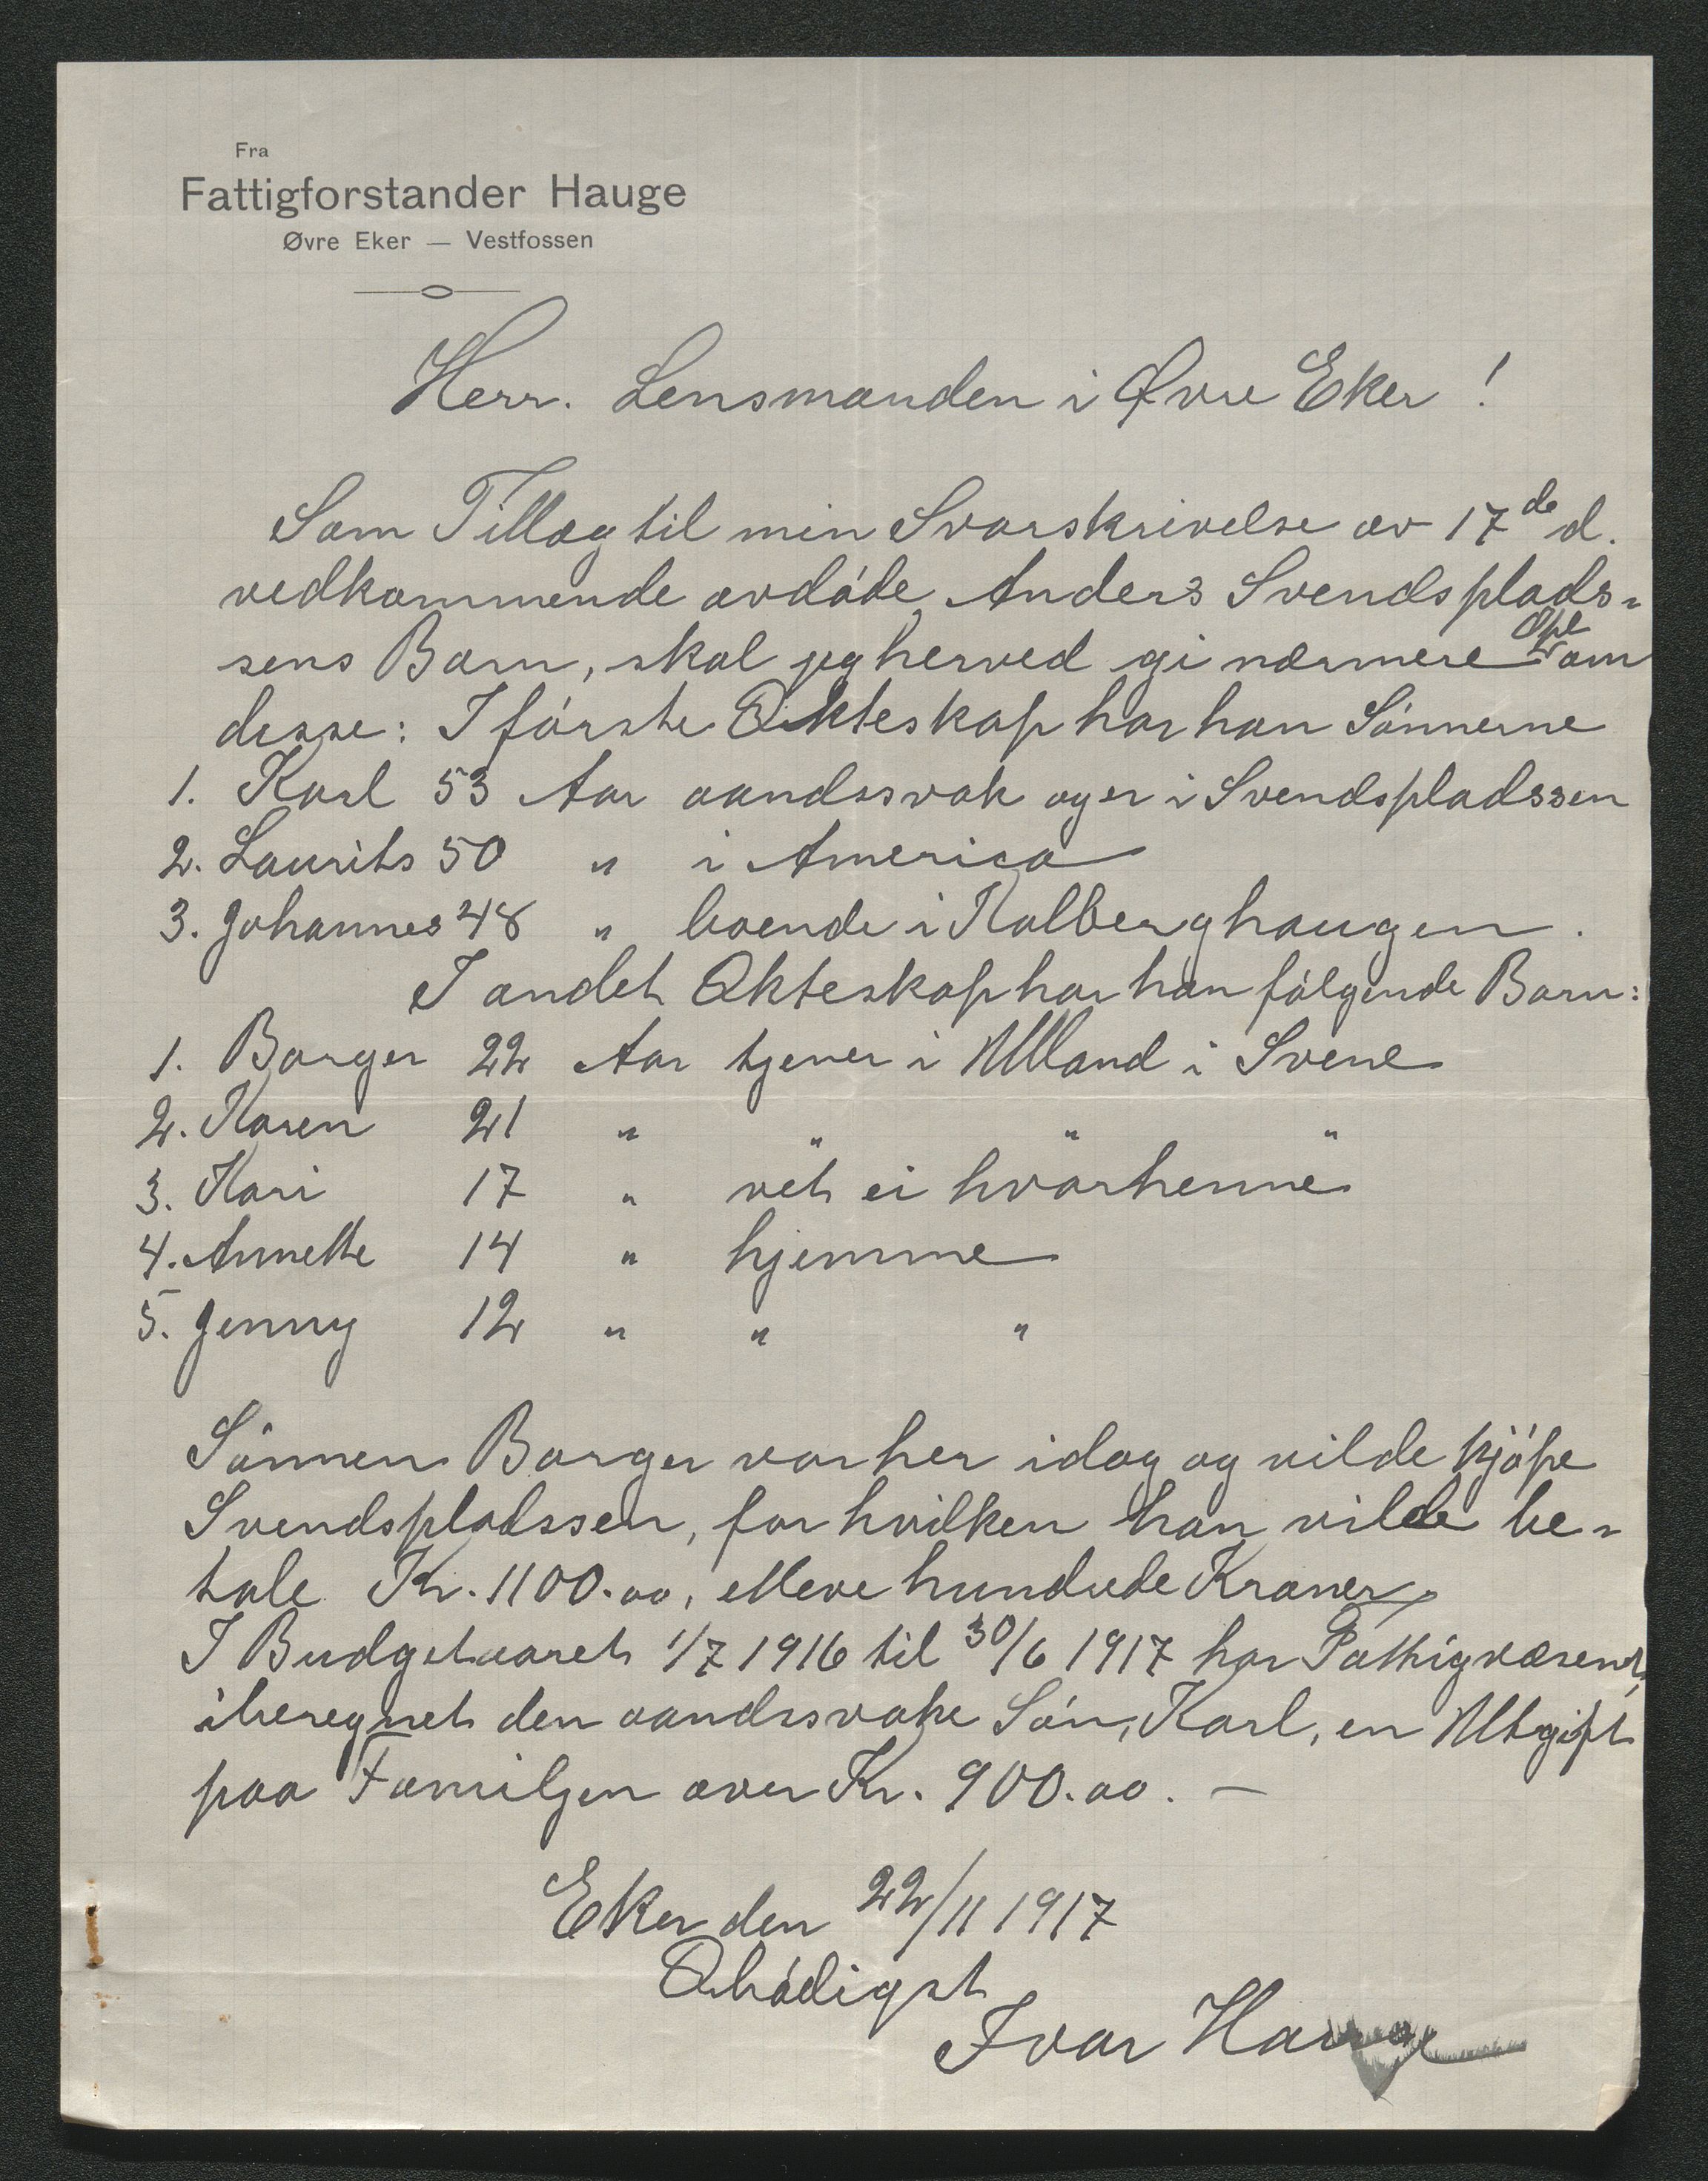 Fra
Fattigforstander Hauge
Øvre Eker — Vestfossen
Herr. Lensmanden i Øvre Eker!
Som Tillæg til min Svarskrivelse av 17de d.
vedkommende avdøde Anders Svendsplads-
sens Barn, skal jeg herved gi nærmere Opl om
disse: I første Ekteskap har han Sønnerne
1. Karl 53 Aar aandssvak og er i Svendspladssen
2. Laurits 50 " i America
3. Johannes 48 " boende i Kolberghaugen.
I andet Ekteskap har han følgende Barn:
1. Borger 22 Aar tjener i Ulland i Svene
2. Karen 21 " " " "
3. Kari 17 " vet ei hvorhenne
4. Annette 14 " hjemme
5. Jenny 12 " " "
Sønnen Borger var her idag og vilde kjøpe
Svendspladssen, for hvilken han vilde be-
tale Kr. 1100.00, elleve hundrede Kroner,
I Budgetaaret 1/7 1916 til 30/6 1917 har Fattigvæsenet,
iberegnet den aandssvake Søn, Karl, en Utgift
paa Familjen over Kr. 900.00. —
Eker den 22/11 1917
Ærbødigst
Ivar Hauge